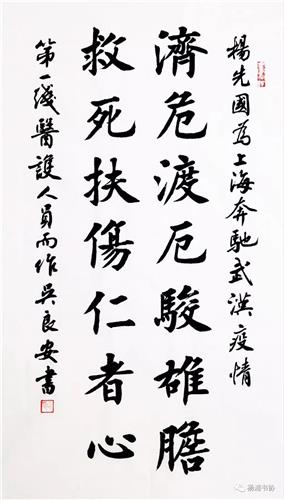 楊先國為上海奔馳武漢疫情
濟危渡厄駿雄膽
救死扶傷仁者心
第一綫醫護人員而作吳良安書